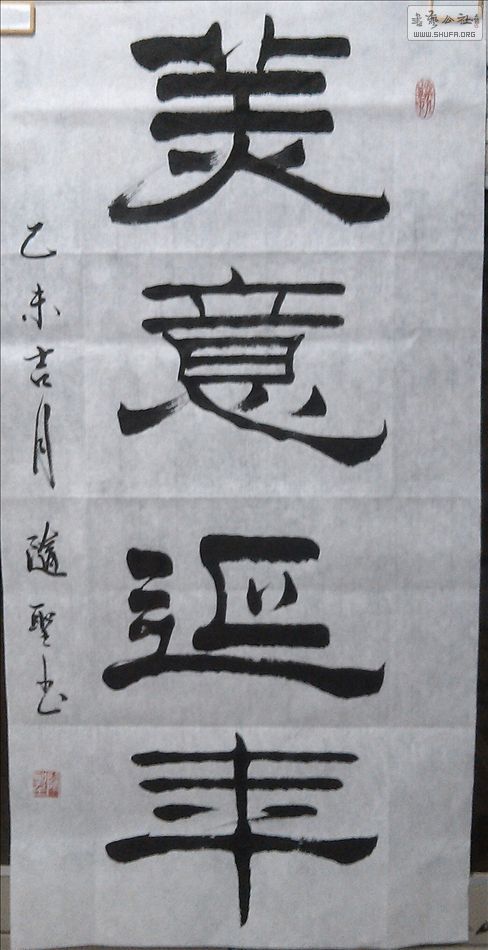 美意延年
乙未吉月 隨聖书
書藝公社
WWW.SHUFA.ORG